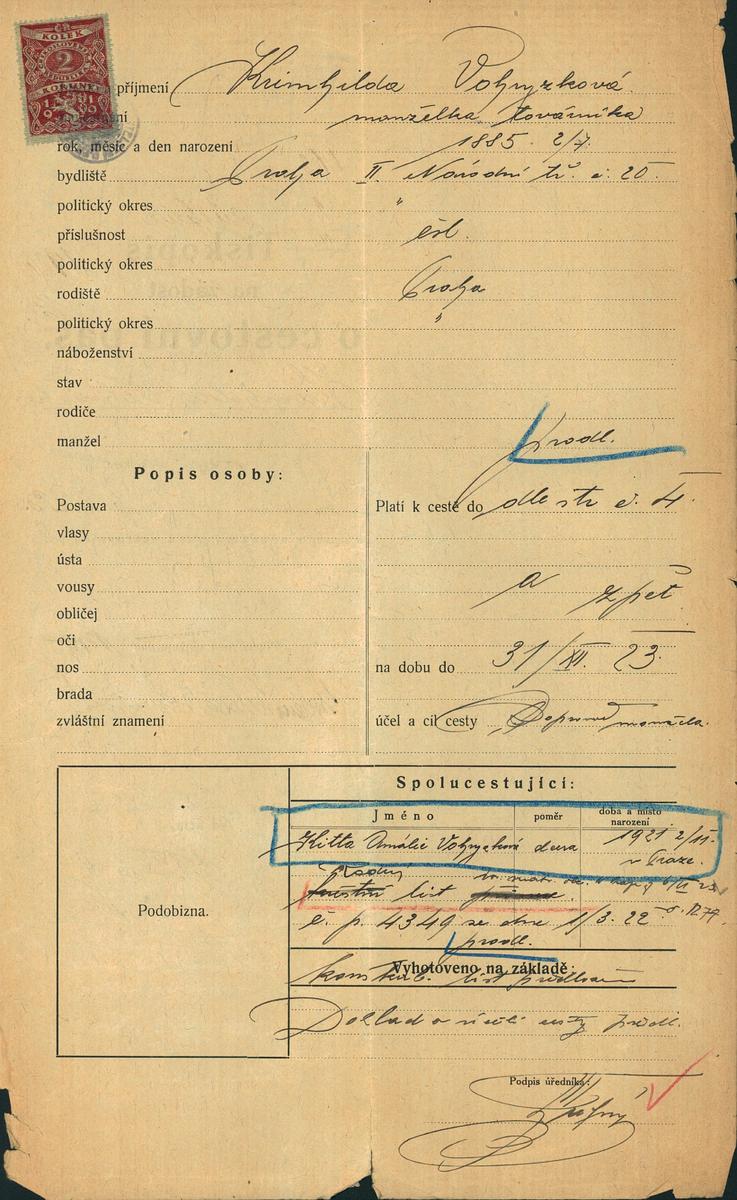 ČR
KOLEK
2
KORUNY
1919
příjmení Krimhilda Vohryzková
manželka továrníka
rok, měsíc a den narození 1885 2/7.
bydliště Praha II. Národní tř. č. 20
politický okres "
příslušnost čsl.
politický okres
rodiště Praha
politický okres "
náboženství
stav
rodiče
manžel
prodl.
Popis osoby:
Postava
vlasy
ústa
vousy
obličej
oči
nos
brada
zvláštní znamení
Platí k cestě do dle str. č. 4.
a zpět
na dobu do 31/XII. 23.
účel a cíl cesty Doprovod manžela.
Spolucestující:
Jméno poměr doba a místo narození
Kitta Amálie Vohryzková dcera 1921 2/11.
v Praze.
Řádný
list
č. p. 4349 ze dne 1/3. 22
prodl.
Vyhotoveno na základě:
list
Doklad o účeli cesty předl.
Podobizna.
Podpis úředníka: